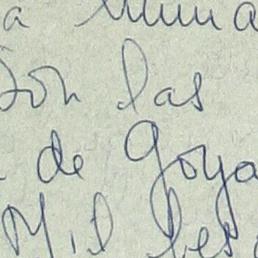 a
son las
de Goya
Mil bes